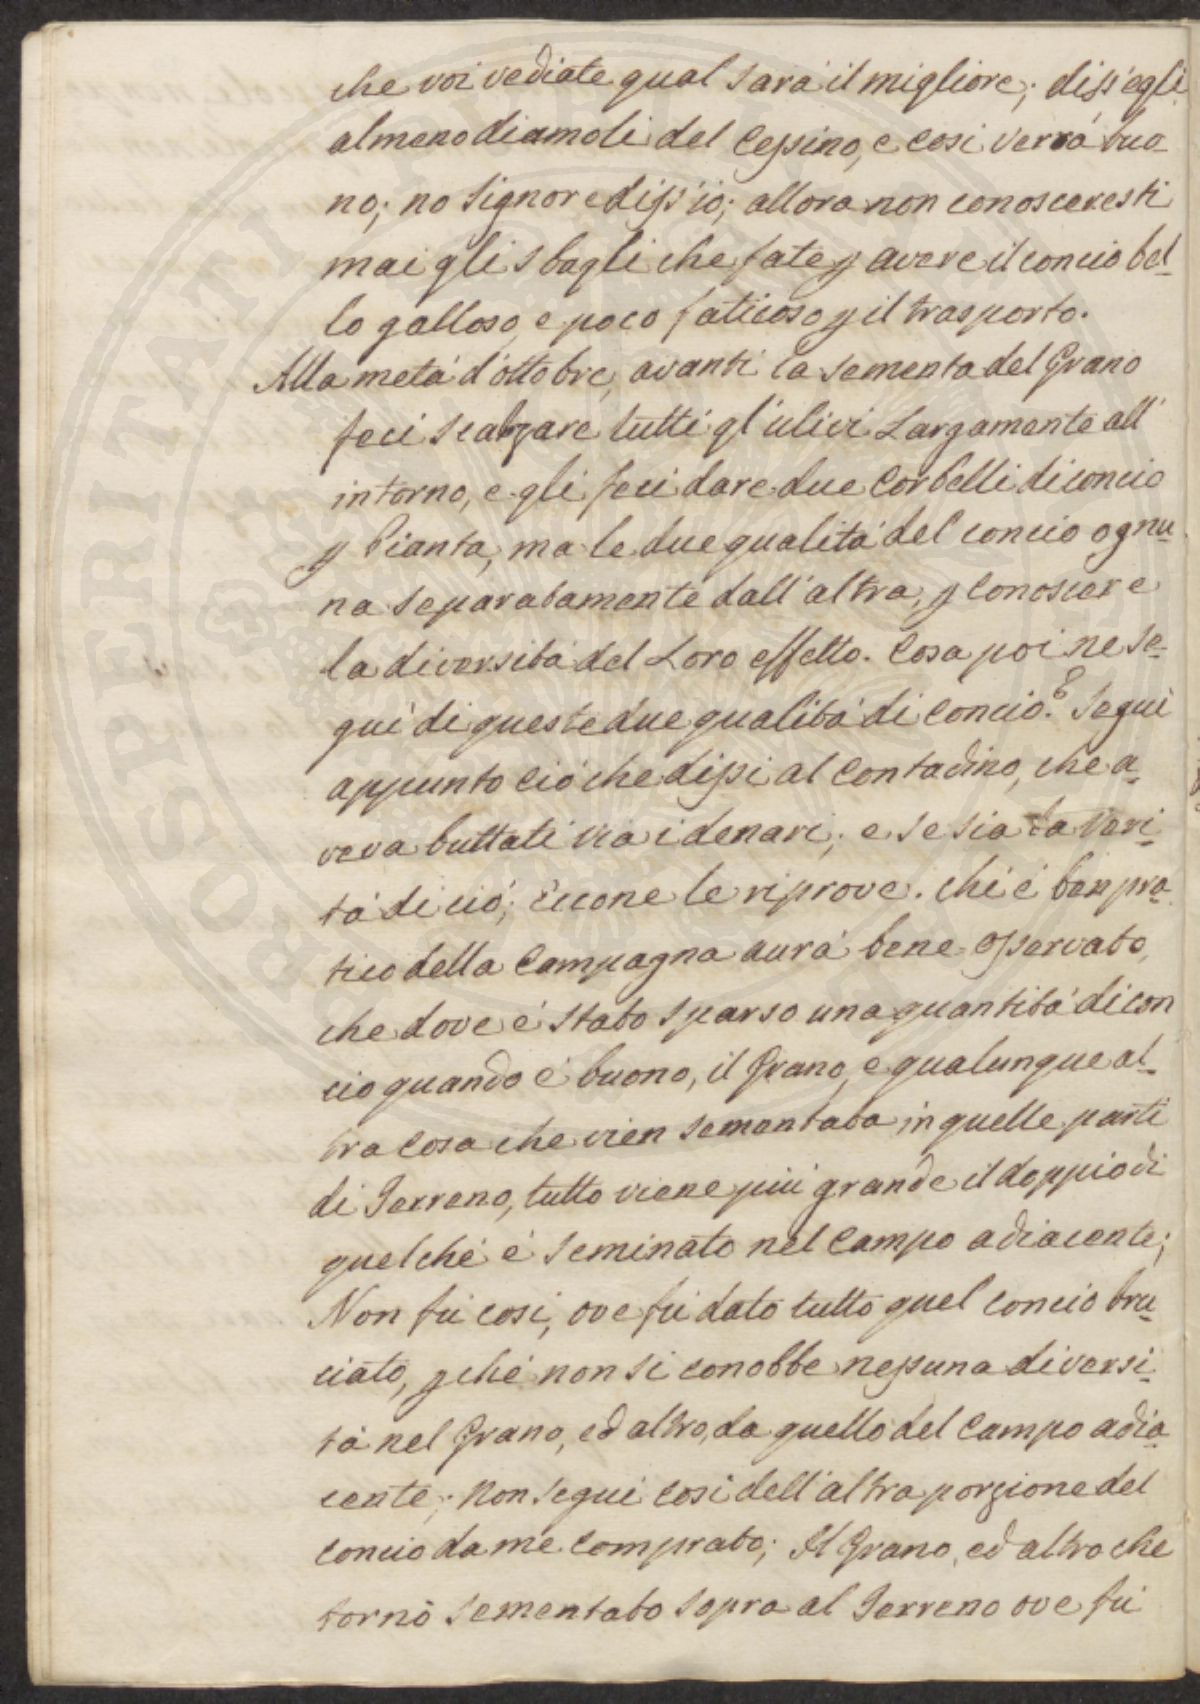 che voi vediate qual sarà il migliore; diss'egli
almeno diamoli del Cessino, e così verrà buo-
no; no Signore diss'io; allora non conosceresti
mai gli sbagli che fate p avere il concio bel-
lo galloso, e poco faticoso p il trasporto.
Alla metà d'ottobre, avanti la sementa del Grano
feci scalzare tutti gl'ulivi Largamente all'
intorno, e gli feci dare due Corbelli di concio
p Pianta, ma le due qualità del concio ognu-
na separatamente dall'altra, p conoscere
la diversità del Loro effetto. Cosa poi ne se-
guì di queste due qualità di concio? Seguì
appunto ciò che dissi al Contadino, che a-
veva buttati via i denari; e se sia la veri-
tà di ciò; Eccone le riprove. Chi è ben pra-
tico della Campagna aurà bene osservato,
che dove è stato sparso una quantità di con
cio quando è buono, il Grano, e qualunque al-
tra cosa che vien sementata in quelle parti
di Terreno, tutto viene più grande il doppio di
quel che è seminato nel Campo adiacente;
Non fù così, ove fù dato tutto quel concio bru-
ciato, p ché non si conobbe nessuna diversi-
tà nel Grano, ed altro, da quello del Campo adia-
cente; non seguì così dell'altra porzione del
concio da me comprato; Il Grano, ed altro che
tornò sementato sopra al Terreno ove fù
PROSPERITATI